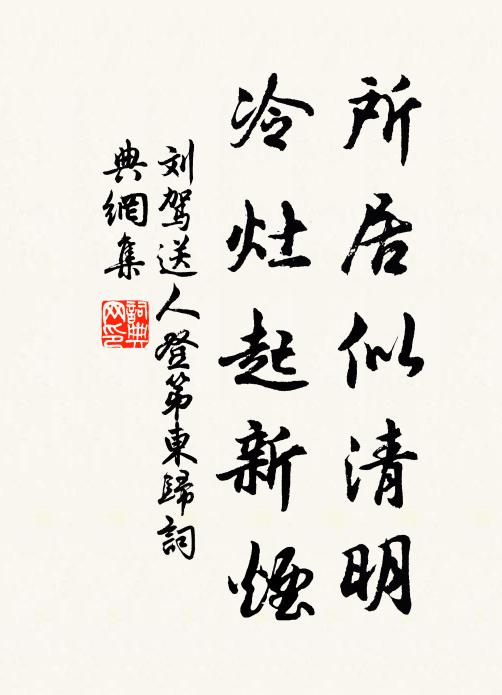 所居似清明
冷灶起新煙
刘驾送人登第東歸詞
典網集
詞典
网印